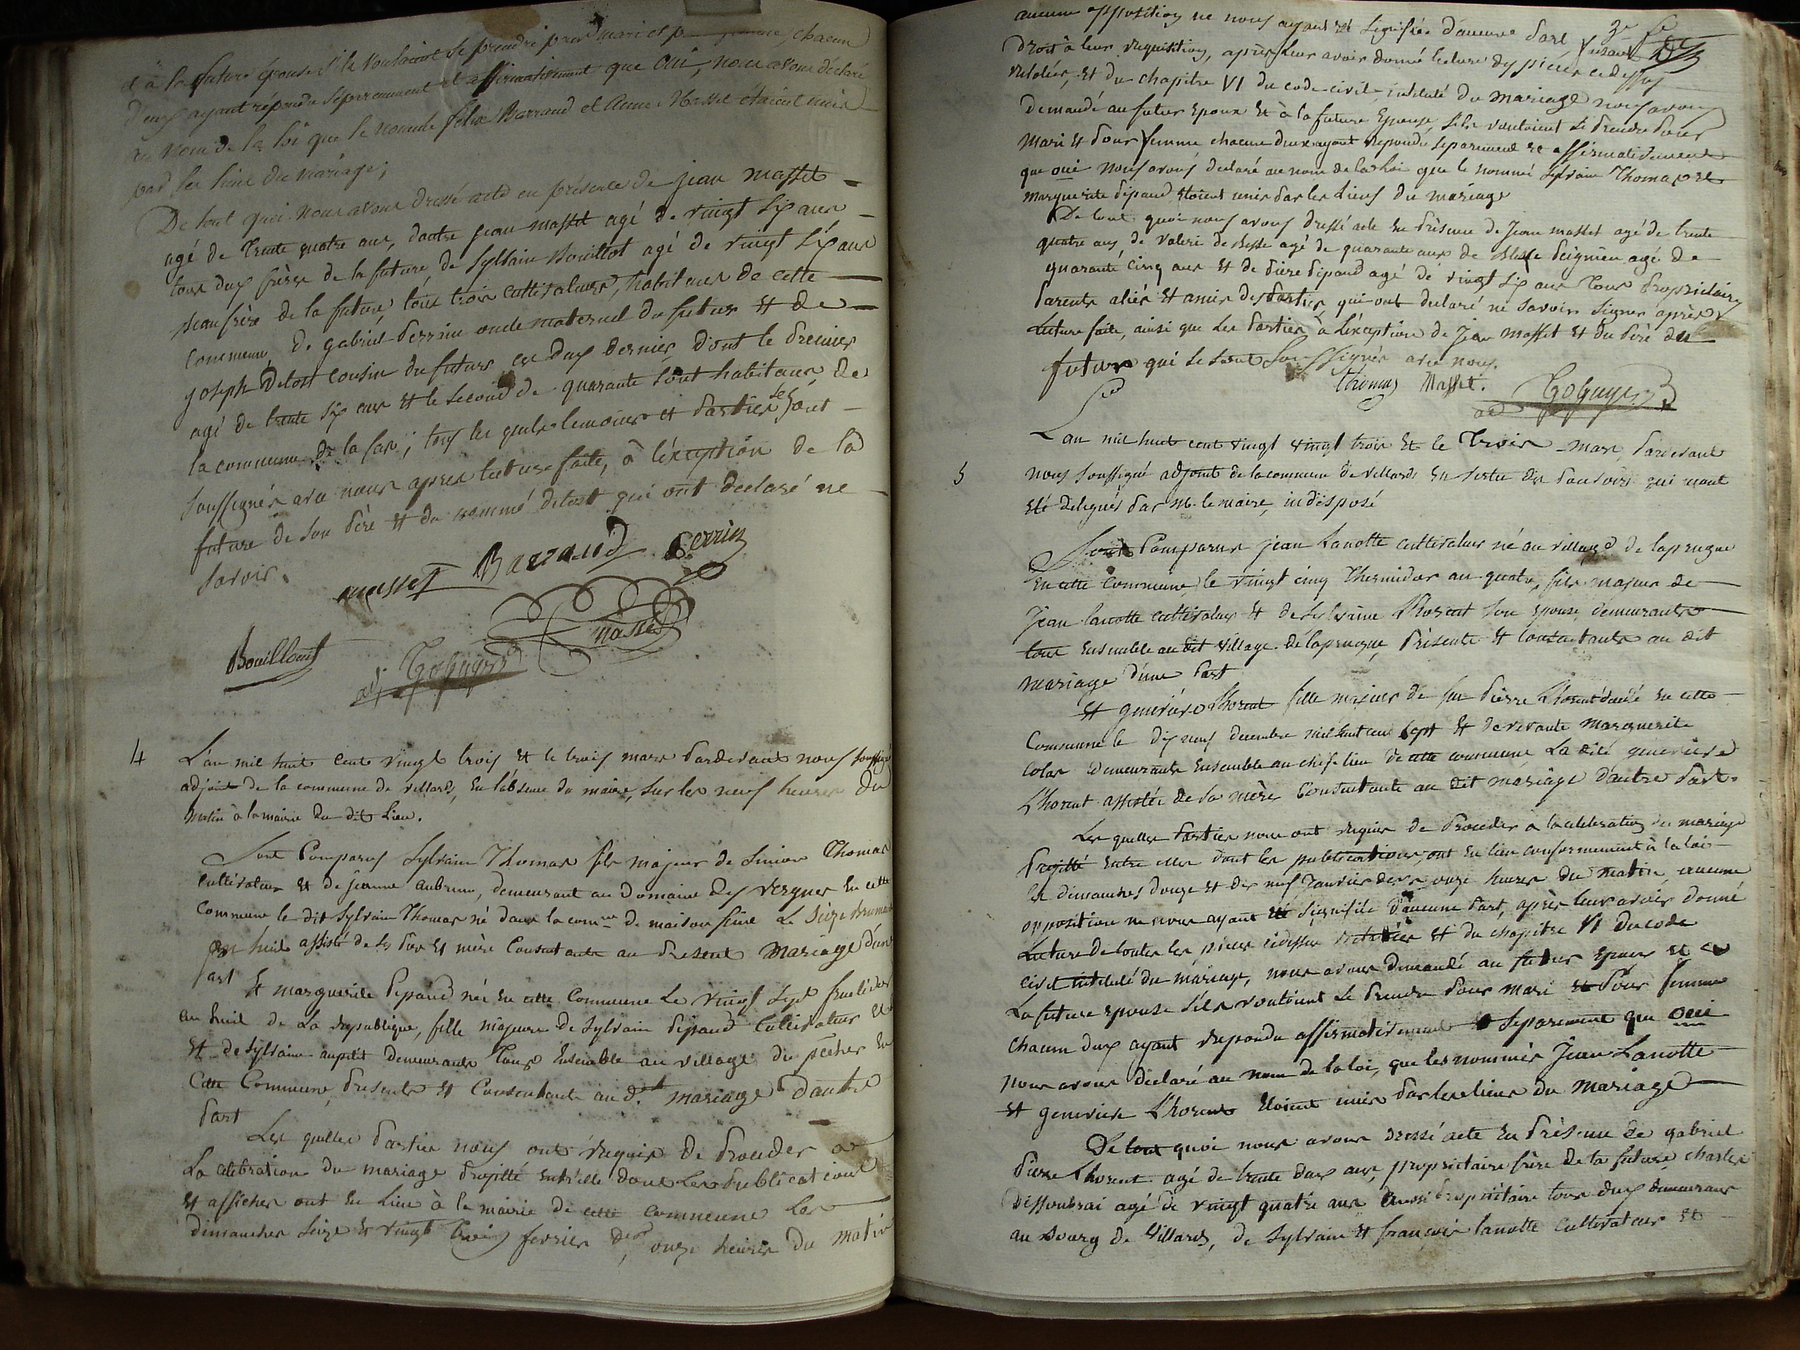 et à la future épouse s'ils voulaient se prendre pour mari et pour femme chacun
d'eux ayant répondu séparément et affirmativement que Oui, nous avons déclaré
au nom de la loi que le nommé felix Barraud et Anne Masset étaient unis
par les liens du mariage;
De tout quoi nous avons dressé acte en présence de jean masset
agé de trente quatre ans, d'autre jean masset agé de vingt six ans
tous deux frères de la future, de Sylvain Bouillot agé de vingt six ans
beaufrère de la future, tous trois cultivateurs, habitans de cette
commune, De gabriel Perrin oncle maternel du futur et de
joseph Delost cousin du futur, ces deux dernier, dont le premier
agé de trente six ans et le second de quarante sont habitans de
la commune de la ; tous les quels temoins et parties ont
soussignés avec nous apres lecture faite, à l'exception de la
future de son père et du nommé Delost qui ont declaré ne
savoir.
masset Barraud Perrin
Masset
Bouillout
adj
4 L'an mil huit cents vingt trois et le trois mars pardevant nous soussigné
adjoint de la commune de villards, en l'absence du maire, sur les neuf heures du
matin à la mairie du dit lieu.
Sont Comparus Sylvain Thomas fils majeur de Simon Thomas
cultivateur et de jeanne aubrun, demeurant au Domaine des vergnes en cette
Commune le dit Sylvain Thomas né dans la comne de maison feine le Seize brumaire
an huit assisté de ses père et mère Consentants au present mariage d'une
part
Et marguerite Pipaud née en cette Commune le vingt sept
an huit de la republique, fille majeure de Sylvain pipaud Cultivateur et
Et de Sylvaine aupetit demeurants Tous Ensemble au village du pécher en
Cette Commune, Presents et Consentants au dt. mariage d'autre
part
Les quelles Parties nous ont requis de Proceder a
La celebration du mariage projetté entr'elle dont les publications
et affiches ont eu lieu à la mairie de cette commune les
dimanches Seize et vingt trois fevrier der, onze heures du matin
aucune opposition ne nous ayant été signifiée d'aucune part faisant
Droit à leur requisition, après leur avoir donné lecture des pièces cidessus
relatées, et du chapitre VI du code civil intitulé du mariage nous avons
demandé au futur Epoux et à la future Epouse, s'ils vouloient se prendre pour
mari et pour femme chacun d'eux ayant repondu séparement et affirmativement
que oui nous avons déclaré au nom de la loi que le nommé Sylvain Thomas et
marguerite Pipaud etoient unis par les liens du mariage
De tout quoi nous avons dressé acte en présence de Jean masset agé de trente
quatre ans, de Valeri de Besse agé de quarante ans de Peignien agé de
quarante cinq ans et de Pierre Pipaud agé de vingt six ans Tous Proprietaires
Parents aliés et amis des Parties, qui ont declaré ne savoir signer après
Lecture faite, ainsi que les Parties à l'exception de Jean masset et du père du
futur qui se sont Soussignés avec nous.
Thomas Masset.
adj
5 L'an mil huit cent vingt vingt trois Et le Trois mars, pardevant
nous soussigné adjoint de la commune de villards en vertu des pouvoirs qui m'ont
été delegués par Mr le maire, indisposé
Sont Comparus Jean Lanotte cultivateur né au village de laprugne
En cette commune, le vingt cinq Thermidor an quatre, fils majeur de
Jean lanotte cultivateur et de Sylvaine Lhorent son epouse demeurants
tous ensemble au dit village de laprugne, Présents et Consentants au dit
mariage d'une part
Et geneviève Lhorent fille majeure de feu Pierre Lhorent décédé en cette
Commune le dix neuf decembre mil huit cent sept et de vivante marguerite
Colas demeurants Ensemble au chef-lieu de cette commune La dite geneviève
Lhorent assistée de sa mère Consentante au dit mariage d'autre part.
Les quelles Parties nous ont requis de Proceder a la celebration du mariage
Projetté entre elles dont les publications ont eu lieu conformement à la loi
les dimanches douze et dix neuf Janvier der onze heures du matin, aucune
opposition ne nous ayant été signifiée d'aucune part, après leur avoir donné
lecture de toutes les pièces cidessus relatées et du chapitre VI du code
civil intitulé du mariage, nous avons demandé au futur epoux et a
La future epouse s'ils vouloient se prendre pour mari et pour femme
chacun d'eux ayant repondu affirmativement et separement que oui
nous avons déclaré au nom de la loi, que les nommés Jean Lanotte
et geneviève Lhorent étoient unis par les liens du mariage
De tout quoi nous avons dressé acte en présence de gabriel
Pierre Lhorent agé de trente deux ans, propriétaire frère de la future, charles
Dissoubrai agé de vingt quatre ans aussi Propriétaire tous deux demeurans
au bourg de Villards, de Sylvain et françois lanotte cultivateurs et